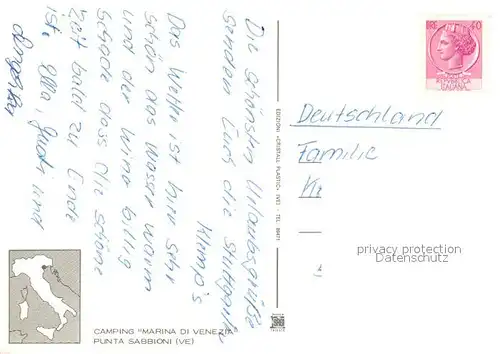 Die schönsten Urlaubsgrüße
senden Euch die Stuttgarter
Klimpo's
Das Wetter ist hier sehr
schön das Wasser warm
und der Wein billig
schade dass die schöne
Zeit bald zu Ende
ist. Ella, Guchi und
EDIZIONI «CRISTALL PLASTIC» (VE) - TEL. 88471
40
REPVBBLICA
ITALIANA
Deutschland
Familie
Kr
privacy protection
Datenschutz
CAMPING "MARINA DI VENEZIA"
PUNTA SABBIONI (VE)